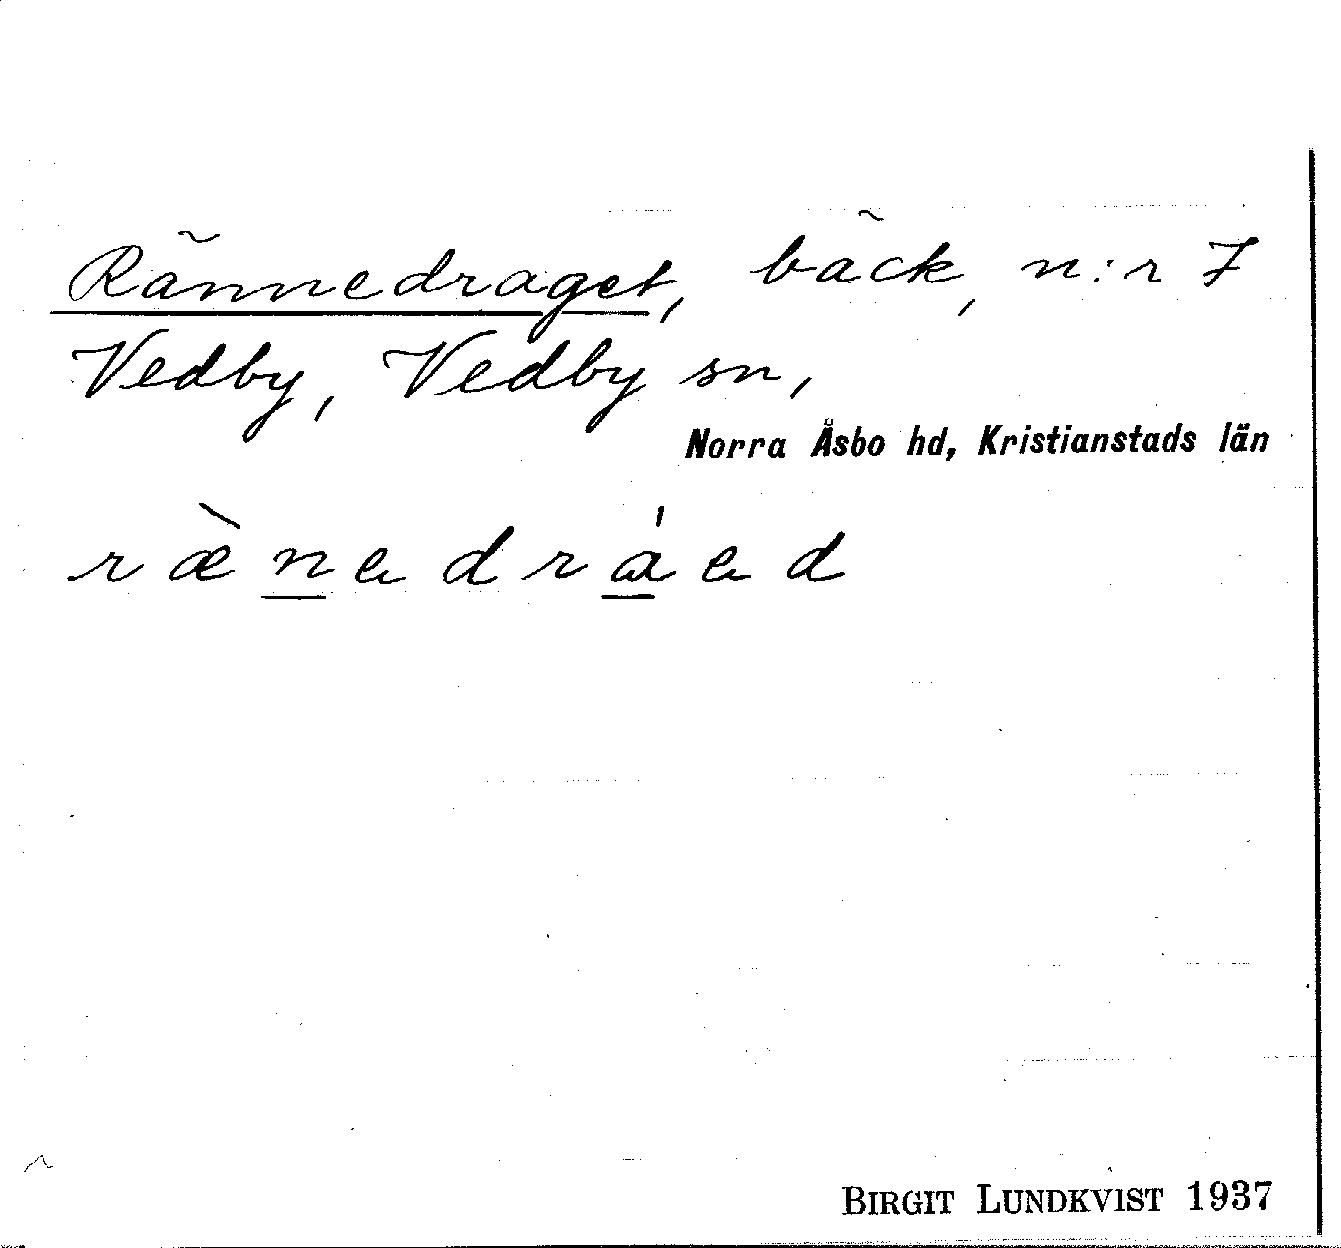 Rännedraget, bäck, n:r 7
Vedby, Vedby sn,
Norra Åsbo hd, Kristianstads län
ræ̀nedráed
BIRGIT LUNDKVIST 1937